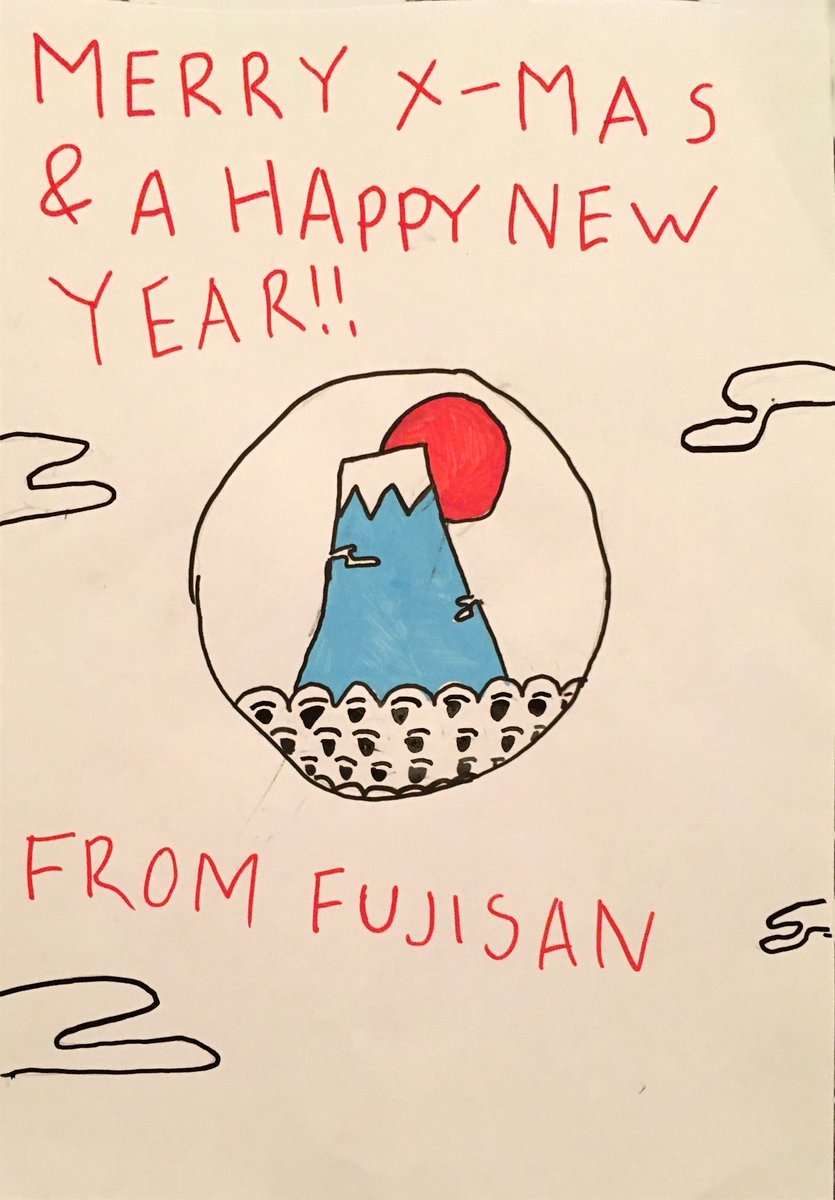 MERRY X-MAS
& A HAPPY NEW
YEAR!!
FROM FUJISAN